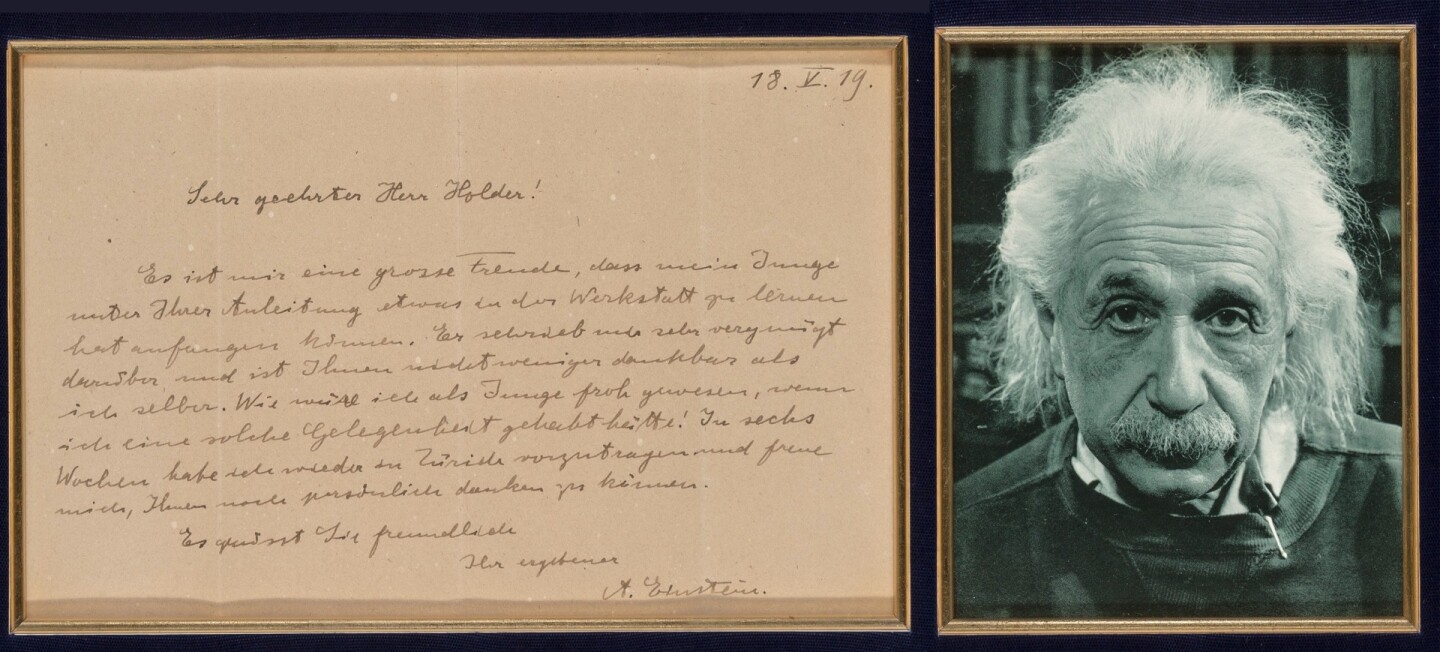 18. V. 19.
Sehr geehrter Herr Holder!
Es ist mir eine grosse Freude, dass mein Junge
unter Ihrer Anleitung etwas in der Werkstatt zu lernen
hat anfangen können. Er schrieb mir sehr vergnügt
darüber und ist Ihnen nicht weniger dankbar als
ich selber. Wie wäre ich als Junge froh gewesen, wenn
ich eine solche Gelegenheit gehabt hätte! In sechs
Wochen habe ich wieder in Zürich vorzutragen und freue
mich, Ihnen noch persönlich danken zu können.
Es grüsst Sie freundlich
Ihr ergebener
A. Einstein.